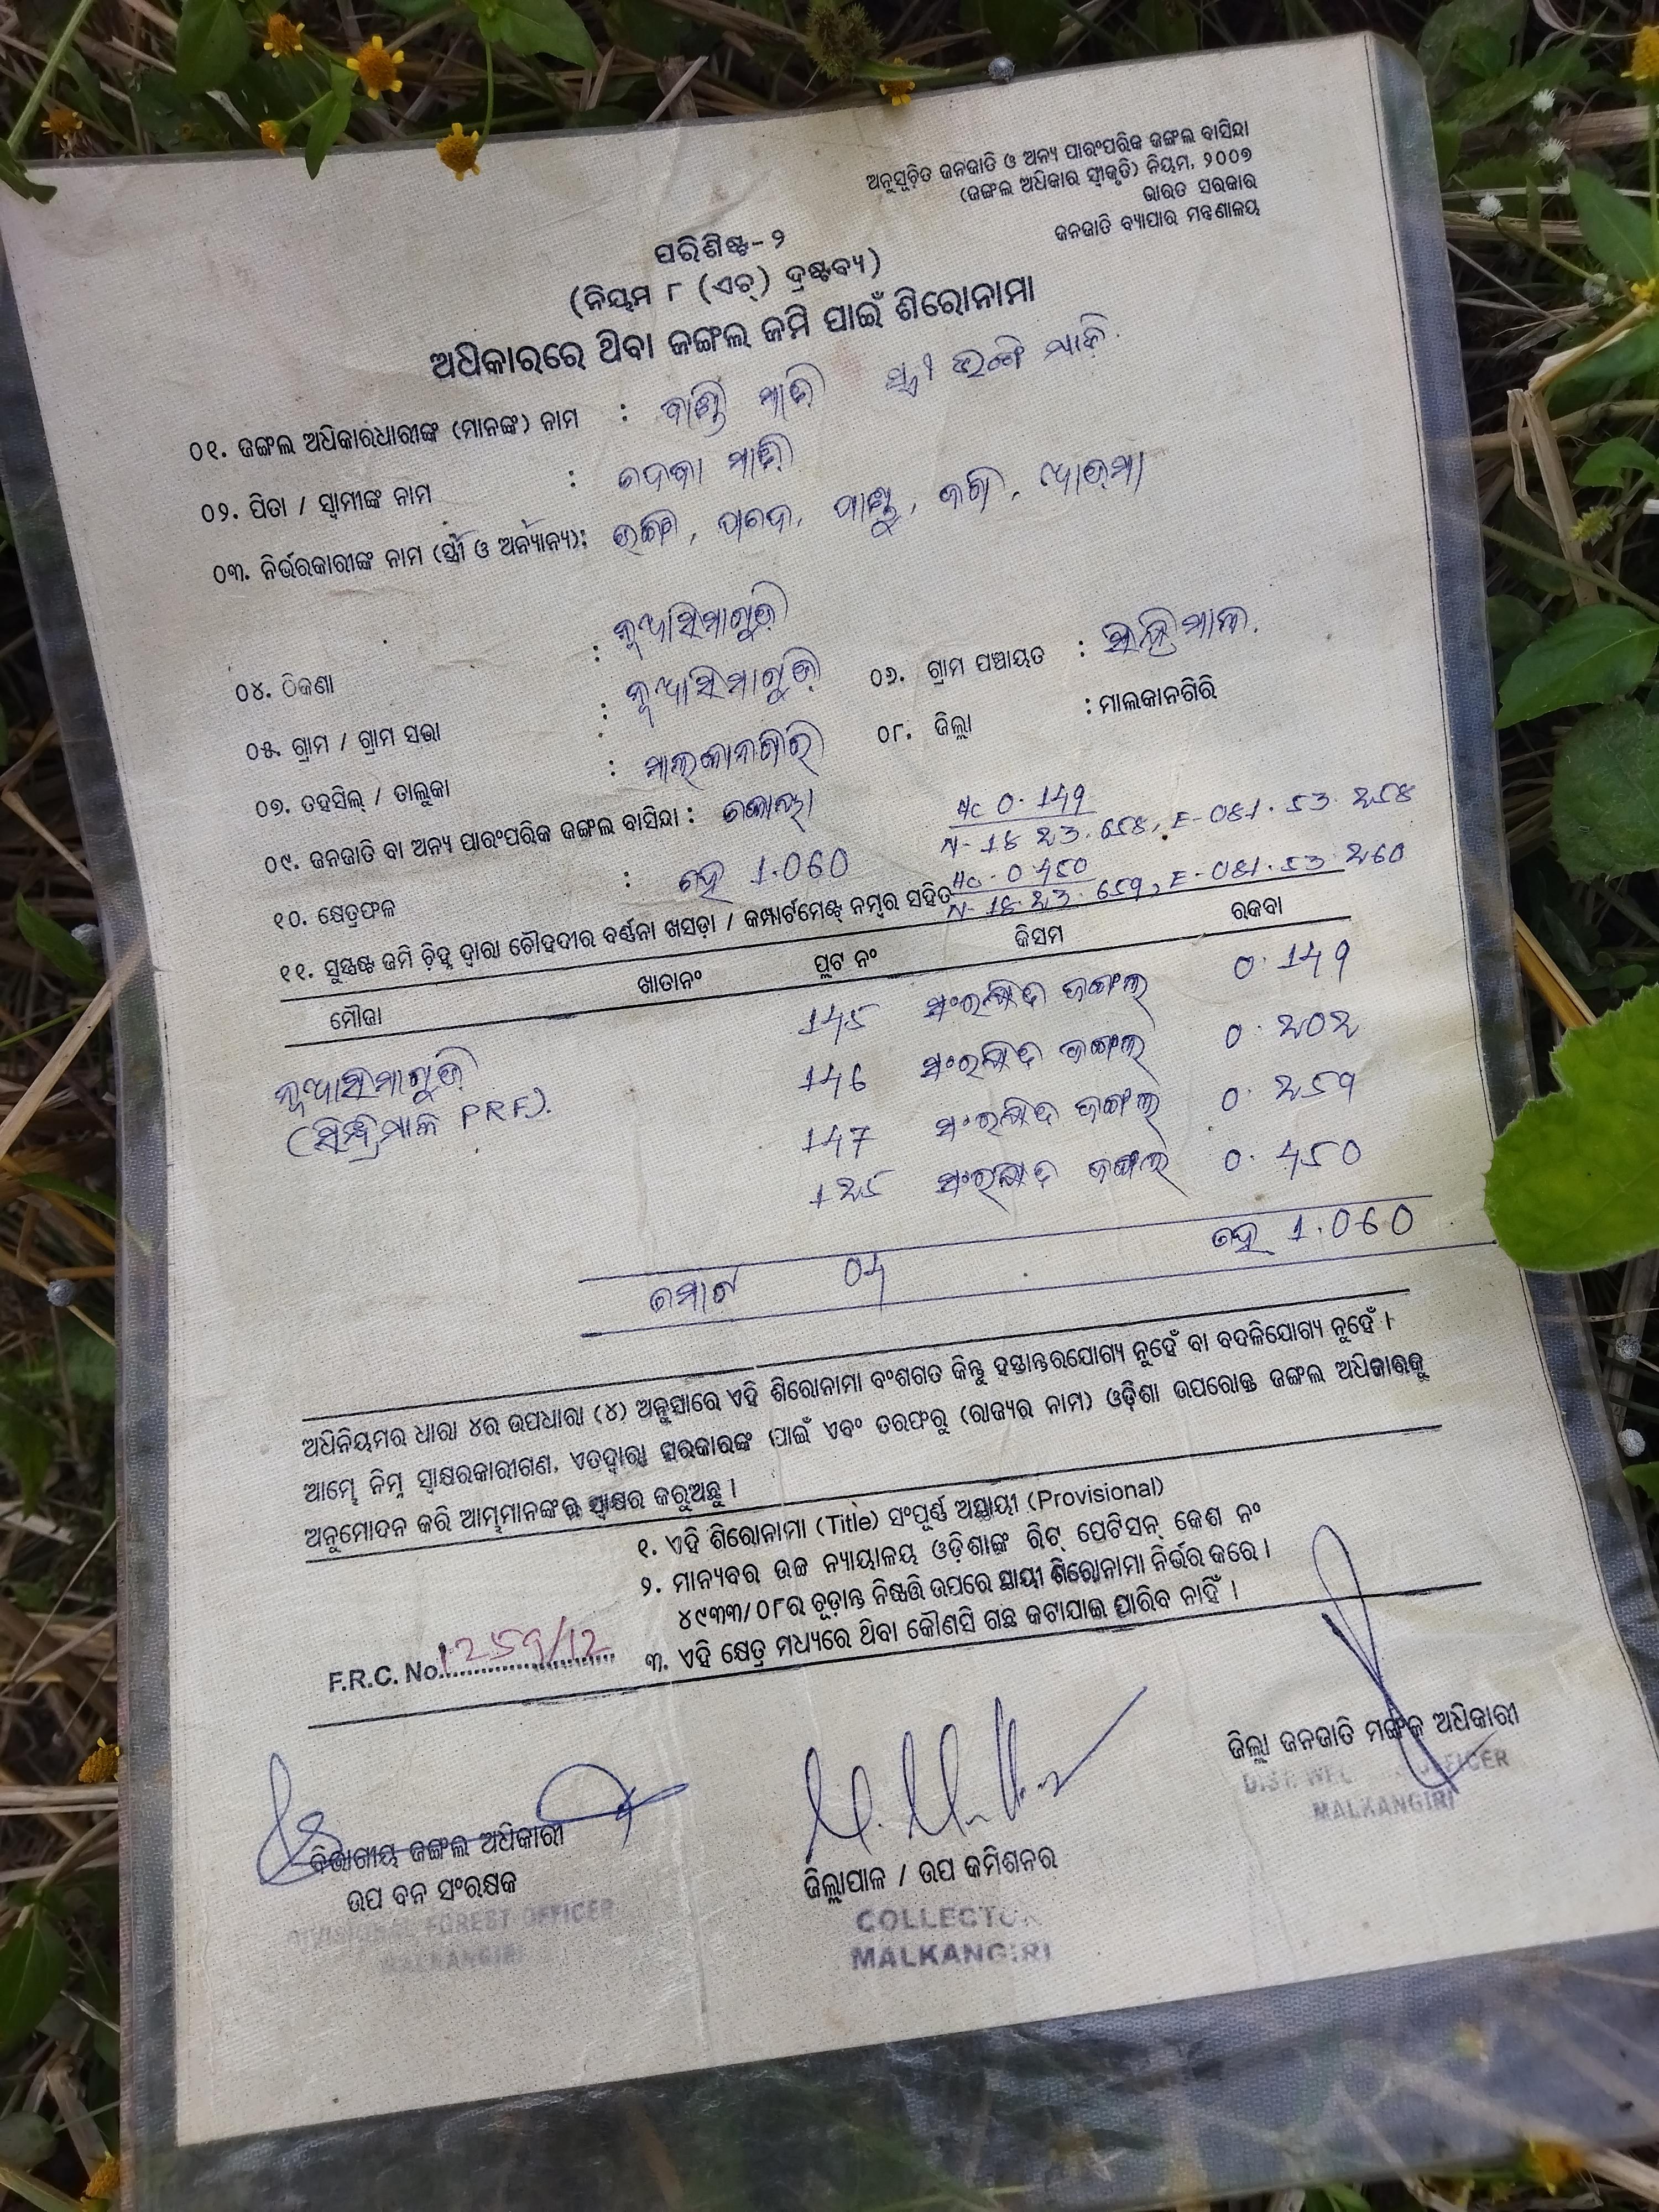 ଅନୁସୂଚିତ ଜନଜାତି ଓ ଅନ୍ୟ ପାରଂପରିକ ଜଙ୍ଗଲ ବାସିନ୍ଦା
(ଜଙ୍ଗଲ ଅଧିକାର ସ୍ୱୀକୃତି) ନିୟମ, ୨୦୦୭
ଭାରତ ସରକାର
ଜନଜାତି ବ୍ୟାପାର ମନ୍ତ୍ରଣାଳୟ
ପରିଶିଷ୍ଟ-୨
(ନିୟମ ୮ (ଏଚ୍) ଦ୍ରଷ୍ଟବ୍ୟ)
ଅଧିକାରରେ ଥିବା ଜଙ୍ଗଲ ଜମି ପାଇଁ ଶିରୋନାମା
୦୧. ଜଙ୍ଗଲ ଅଧିକାରଧାରୀଙ୍କ (ମାନଙ୍କ) ନାମ :
୦୨. ପିତା / ସ୍ୱାମୀଙ୍କ ନାମ :
୦୩. ନିର୍ଭରକାରୀଙ୍କ ନାମ (ସ୍ତ୍ରୀ ଓ ଅନ୍ୟାନ୍ୟ):
୦୪. ଠିକଣା : ନୂଆସିମାଗୁଡ଼ି
୦୫. ଗ୍ରାମ / ଗ୍ରାମ ସଭା : ନୂଆସିମାଗୁଡ଼ି ୦୬. ଗ୍ରାମ ପଞ୍ଚାୟତ :
୦୭. ତହସିଲ୍ / ତାଲୁକା : ମାଲକାନଗିରି ୦୮. ଜିଲ୍ଲା : ମାଲକାନଗିରି
୦୯. ଜନଜାତି ବା ଅନ୍ୟ ପାରଂପରିକ ଜଙ୍ଗଲ ବାସିନ୍ଦା : କୋୟା
Hc 0.149
N-18 23.658, E-081.53.258
୧୦. କ୍ଷେତ୍ରଫଳ : ହେ 1.060
Hc-0.450
N-18.23.659, E-081.53.260
୧୧. ସୁସ୍ପଷ୍ଟ ଜମି ଚିହ୍ନ ଦ୍ୱାରା ଚୌହଦୀର ବର୍ଣ୍ଣନା ଖସଡ଼ା / କମ୍ପାର୍ଟମେଣ୍ଟ୍ ନମ୍ବର ସହିତ
ମୌଜା ଖାତାନଂ ପ୍ଲଟ ନଂ କିସମ ରକବା
145 ସଂରକ୍ଷିତ ଜଙ୍ଗଲ 0.149
ନୂଆସିମାଗୁଡ଼ି 146 ସଂରକ୍ଷିତ ଜଙ୍ଗଲ 0.202
(ସିନ୍ଧ୍ରିମାଳ PRF). 147 ସଂରକ୍ଷିତ ଜଙ୍ଗଲ 0.259
125 ସଂରକ୍ଷିତ ଜଙ୍ଗଲ 0.450
ମୋଟ 04 ହେ 1.060
ଅଧିନିୟମର ଧାରା ୪ର ଉପଧାରା (୪) ଅନୁସାରେ ଏହି ଶିରୋନାମା ବଂଶଗତ କିନ୍ତୁ ହସ୍ତାନ୍ତରଯୋଗ୍ୟ ନୁହେଁ ବା ବଦଳିଯୋଗ୍ୟ ନୁହେଁ ।
ଆମ୍ଭେ ନିମ୍ନ ସ୍ୱାକ୍ଷରକାରୀଗଣ, ଏତଦ୍ୱାରା ସରକାରଙ୍କ ପାଇଁ ଏବଂ ତରଫରୁ (ରାଜ୍ୟର ନାମ) ଓଡ଼ିଶା ଉପରୋକ୍ତ ଜଙ୍ଗଲ ଅଧିକାରକୁ
ଅନୁମୋଦନ କରି ଆମ୍ଭମାନଙ୍କର ସ୍ୱାକ୍ଷର କରୁଅଛୁ ।
୧. ଏହି ଶିରୋନାମା (Title) ସଂପୂର୍ଣ୍ଣ ଅସ୍ଥାୟୀ (Provisional)
୨. ମାନ୍ୟବର ଉଚ୍ଚ ନ୍ୟାୟାଳୟ ଓଡ଼ିଶାଙ୍କ ରିଟ୍ ପେଟିସନ୍ କେଶ ନଂ
୪୯୩୩/୦୮ର ଚୂଡ଼ାନ୍ତ ନିଷ୍ପତ୍ତି ଉପରେ ସ୍ଥାୟୀ ଶିରୋନାମା ନିର୍ଭର କରେ ।
୩. ଏହି କ୍ଷେତ୍ର ମଧ୍ୟରେ ଥିବା କୌଣସି ଗଛ କଟାଯାଇ ପାରିବ ନାହିଁ ।
F.R.C. No. 1259/12
ଜିଲ୍ଲା ଜନଜାତି ମଙ୍ଗଳ ଅଧିକାରୀ
DIST. WEL OFFICER
MALKANGIRI
ବିଭାଗୀୟ ଜଙ୍ଗଲ ଅଧିକାରୀ
ଉପ ବନ ସଂରକ୍ଷକ
DIVISIONAL FOREST OFFICER
MALKANGIRI
ଜିଲ୍ଲାପାଳ / ଉପ କମିଶନର
COLLECTOR
MALKANGIRI